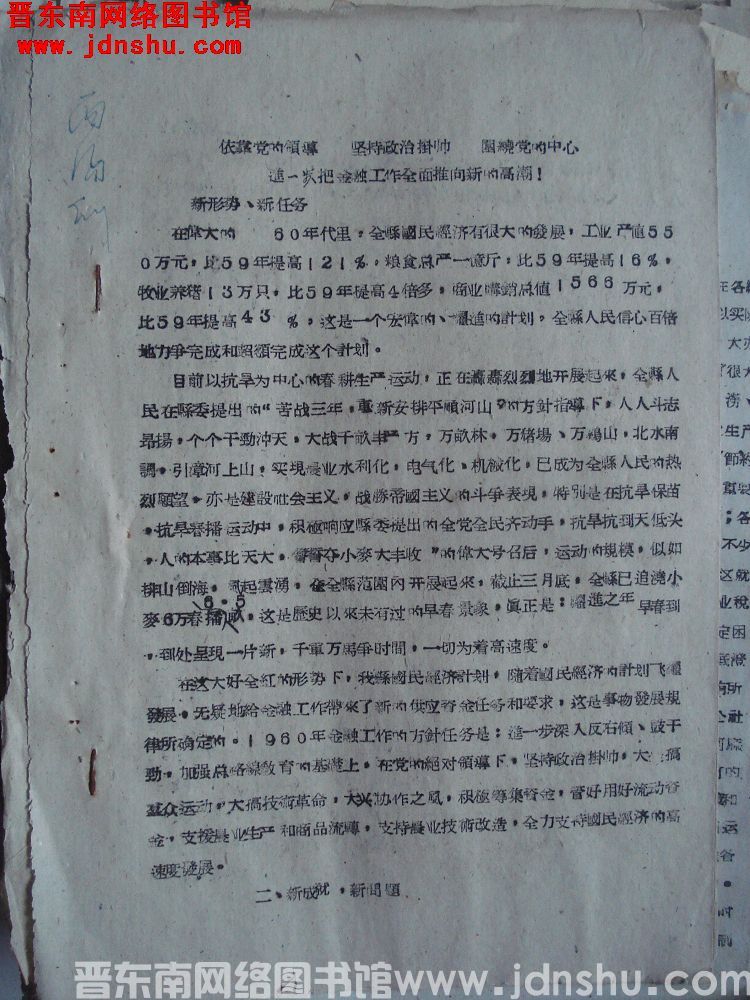 晋东南网络图书馆
www.jdnshu.com
依靠党的領導 坚持政治掛帅 圍繞党的中心
進一步把金融工作全面推向新的高潮！
新形势、新任务
在偉大的 60年代里，全縣國民經济有很大的發展，工业产值55
0万元，比59年提高121%，粮食总产一億斤，比59年提高16%，
牧业养猪13万只，比59年提高4倍多，商业購銷总值1566万元，
比59年提高43%，这是一个宏偉的、躍進的計划，全縣人民信心百倍
地力爭完成和超額完成这个計划。
目前以抗旱为中心的春耕生产运动，正在轟轟烈烈地开展起來，全縣人
民在縣委提出的“苦战三年，重新安排平順河山”的方針指導下，人人斗志
昂揚，个个干劲冲天，大战千畝丰产方，万畝林，万猪場、万鷄山，北水南
調，引漳河上山，实現農业水利化，电气化、机械化，已成为全縣人民的热
烈願望，亦是建設社会主义，战勝帝國主义的斗爭表現，特別是在抗旱保苗
，抗旱春播运动中，积極响应縣委提出的全党全民齐动手，抗旱抗到天低头
，人的本事比天大，誓奪小麥大丰收”的偉大号召后，运动的規模，似如
排山倒海，風起雲湧，在全縣范圍內开展起來，截止三月底，全縣已追澆小
麥6万春播6.5畝，这是歷史以來未有过的早春景象，眞正是：躍進之年早春到
，到处呈現一片新，千軍万馬爭时間，一切为着高速度。
在这大好全紅的形势下，我縣國民經济計划，随着國民經济的計划飞躍
發展，无疑地給金融工作帶來了新的供应資金任务和要求，这是事物發展規
律所确定的。1960年金融工作的方針任务是：進一步深入反右傾、鼓干
勁，加强总路綫教育的基礎上，在党的絕对領導下，坚持政治掛帅，大搞
羣众运动，大搞技術革命，大兴协作之風，积極籌集資金，管好用好流动資
金，支援農业生产和商品流轉，支持農业技術改造，全力支持國民經济的高
速度發展。
二、新成就，新問題
晋东南网络图书馆www.jdnshu.com